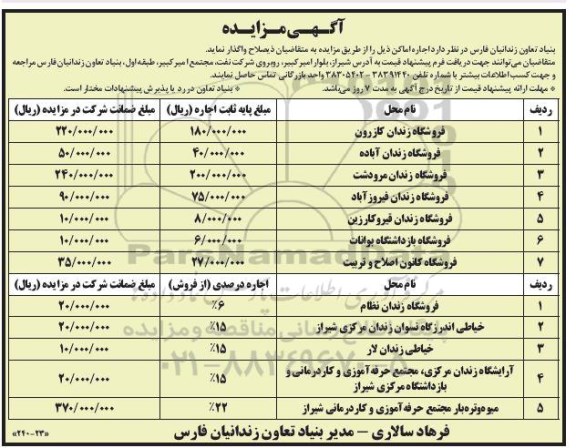 آگهی مزایده
بنیاد تعاون زندانیان فارس در نظر دارد اجاره اماکن ذیل را از طریق مزایده به متقاضیان ذیصلاح واگذار نماید.
متقاضیان می‌توانند جهت دریافت فرم پیشنهاد قیمت به آدرس شیراز، بلوار امیرکبیر، روبروی شرکت نفت، مجتمع امیرکبیر، طبقه اول، بنیاد تعاون زندانیان فارس مراجعه
و جهت کسب اطلاعات بیشتر با شماره تلفن ۳۸۳۹۱۴۴۰ - ۳۸۳۰۵۴۰۲ واحد بازرگانی تماس حاصل نمایند.
* مهلت ارائه پیشنهاد قیمت از تاریخ درج آگهی به مدت ۷ روز می‌باشد. * بنیاد تعاون در رد یا پذیرش پیشنهادات مختار است.
ردیف نام محل مبلغ پایه ثابت اجاره (ریال) مبلغ ضمانت شرکت در مزایده (ریال)
۱ فروشگاه زندان کازرون ۱۸۰/۰۰۰/۰۰۰ ۲۲۰/۰۰۰/۰۰۰
۲ فروشگاه زندان آباده ۴۰/۰۰۰/۰۰۰ ۵۰/۰۰۰/۰۰۰
۳ فروشگاه زندان مرودشت ۲۰۰/۰۰۰/۰۰۰ ۲۴۰/۰۰۰/۰۰۰
۴ فروشگاه زندان فیروزآباد ۷۵/۰۰۰/۰۰۰ ۹۰/۰۰۰/۰۰۰
۵ فروشگاه زندان قیروکارزین ۸/۰۰۰/۰۰۰ ۱۰/۰۰۰/۰۰۰
۶ فروشگاه بازداشتگاه بوانات ۶/۰۰۰/۰۰۰ ۱۰/۰۰۰/۰۰۰
۷ فروشگاه کانون اصلاح و تربیت ۲۷/۰۰۰/۰۰۰ ۳۵/۰۰۰/۰۰۰
ردیف نام محل اجاره درصدی (از فروش) مبلغ ضمانت شرکت در مزایده (ریال)
۱ فروشگاه زندان نظام ٪۶ ۲۰/۰۰۰/۰۰۰
۲ خیاطی اندرزگاه نسوان زندان مرکزی شیراز ٪۱۵ ۲۰/۰۰۰/۰۰۰
۳ خیاطی زندان لار ٪۱۵ ۱۰/۰۰۰/۰۰۰
۴ آرایشگاه زندان مرکزی، مجتمع حرفه‌آموزی و کاردرمانی و
بازداشتگاه مرکزی شیراز ٪۱۵ ۲۰/۰۰۰/۰۰۰
۵ میوه‌وتره‌بار مجتمع حرفه‌آموزی و کاردرمانی شیراز ٪۲۲ ۳۷۰/۰۰۰/۰۰۰
فرهاد سالاری – مدیر بنیاد تعاون زندانیان فارس
«۲۴۰-۲۳»
ParsNamadData
۰۲۱-۸۸۳۴۹۶۷۰-۵